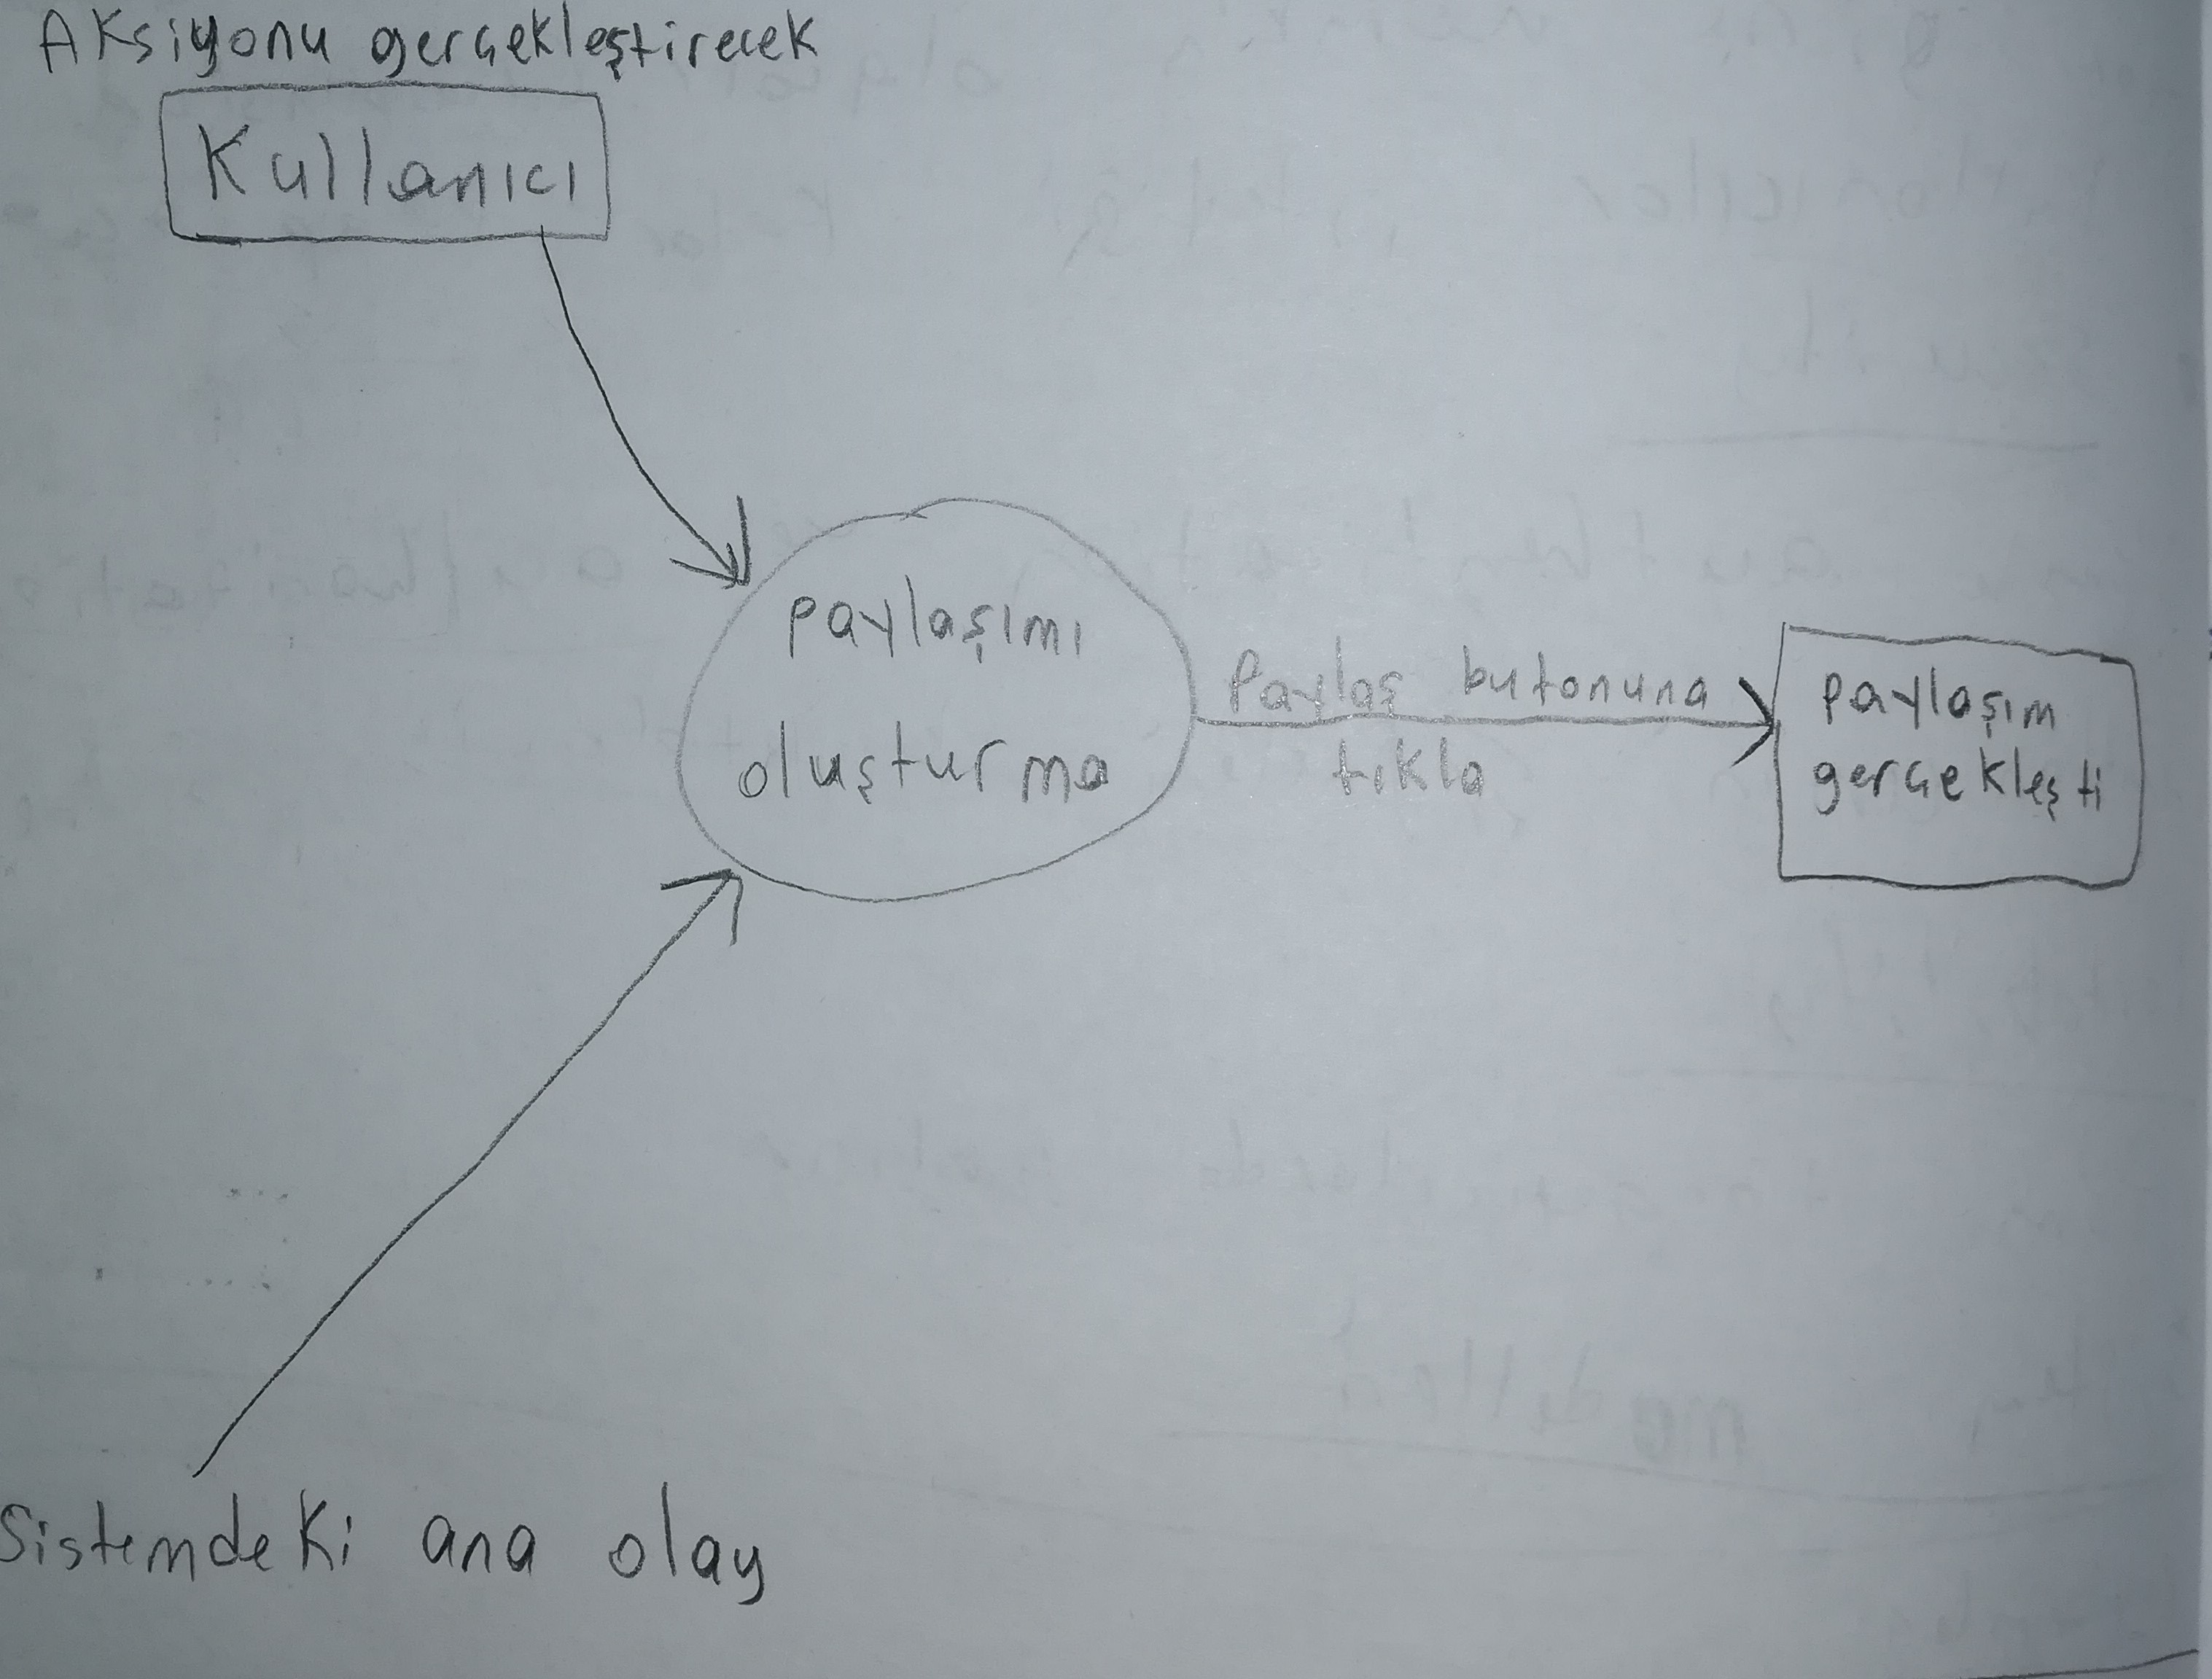 Aksiyonu gerçekleştirecek
Kullanıcı
paylaşımı
oluşturma
Paylaş butonuna
tıkla
paylaşım
gerçekleşti
Sistemdeki ana olay